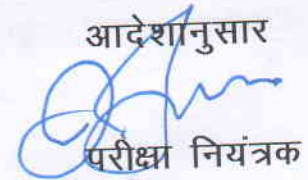 आदेशानुसार
परीक्षा नियंत्रक